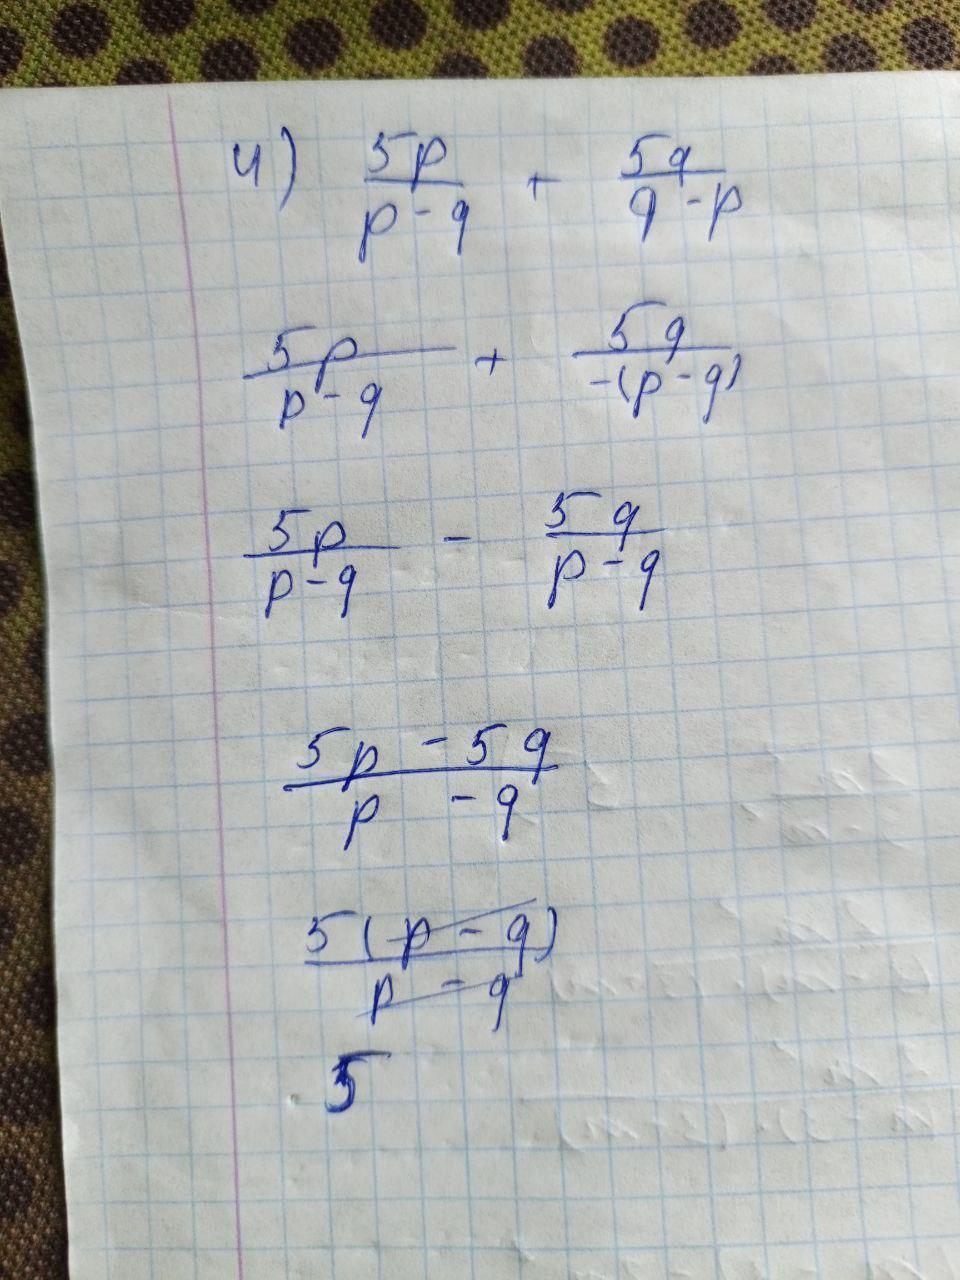 4) 5p/(p - q) + 5q/(q - p)
5p/(p - q) + 5q/(-(p - q))
5p/(p - q) - 5q/(p - q)
(5p - 5q)/(p - q)
5(p - q)/(p - q)
5